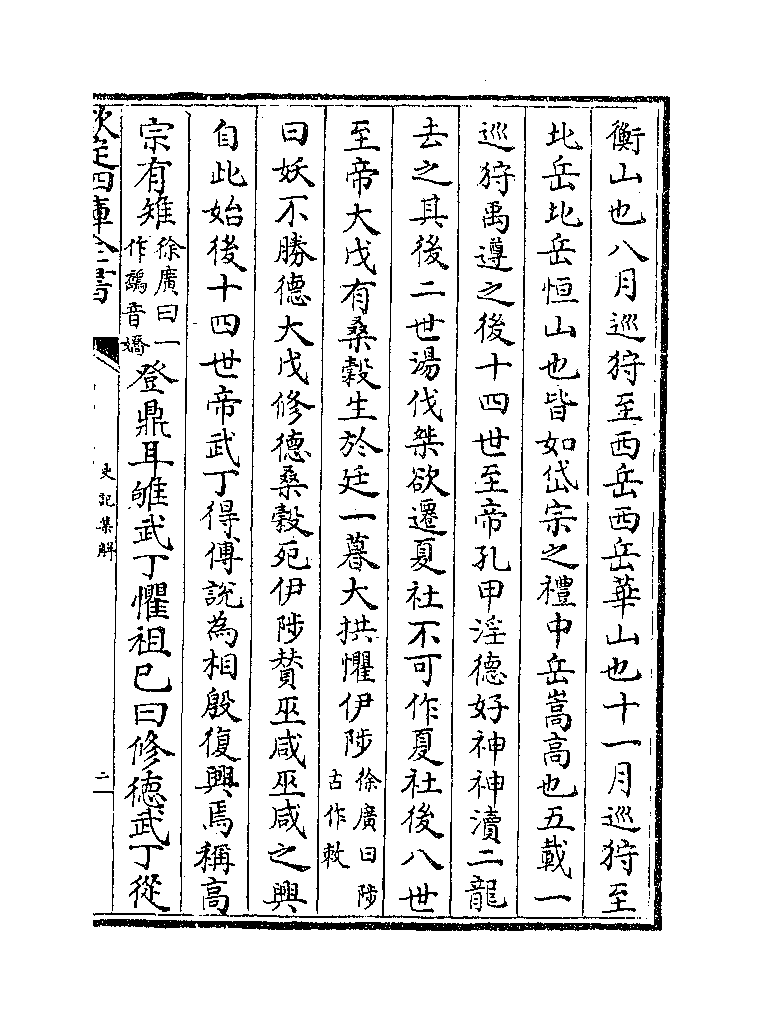 衡山也八月巡狩至西岳西岳華山也十一月巡狩至
北岳北岳恒山也皆如岱宗之禮中岳嵩高也五載一
巡狩禹遵之後十四世至帝孔甲淫德好神神瀆二龍
去之其後二世湯伐桀欲遷夏社不可作夏社後八世
至帝大戊有桑榖生於廷一暮大拱懼伊陟徐廣曰陟古作敕
曰妖不勝德大戊修德桑榖死伊陟賛巫咸巫咸之興
自此始後十四世帝武丁得傅說為相殷復興焉稱髙
宗有雉徐廣曰一作鷮音嬌登鼎耳雊武丁懼祖已曰修徳武丁從
欽定四庫全書
史記集解
二